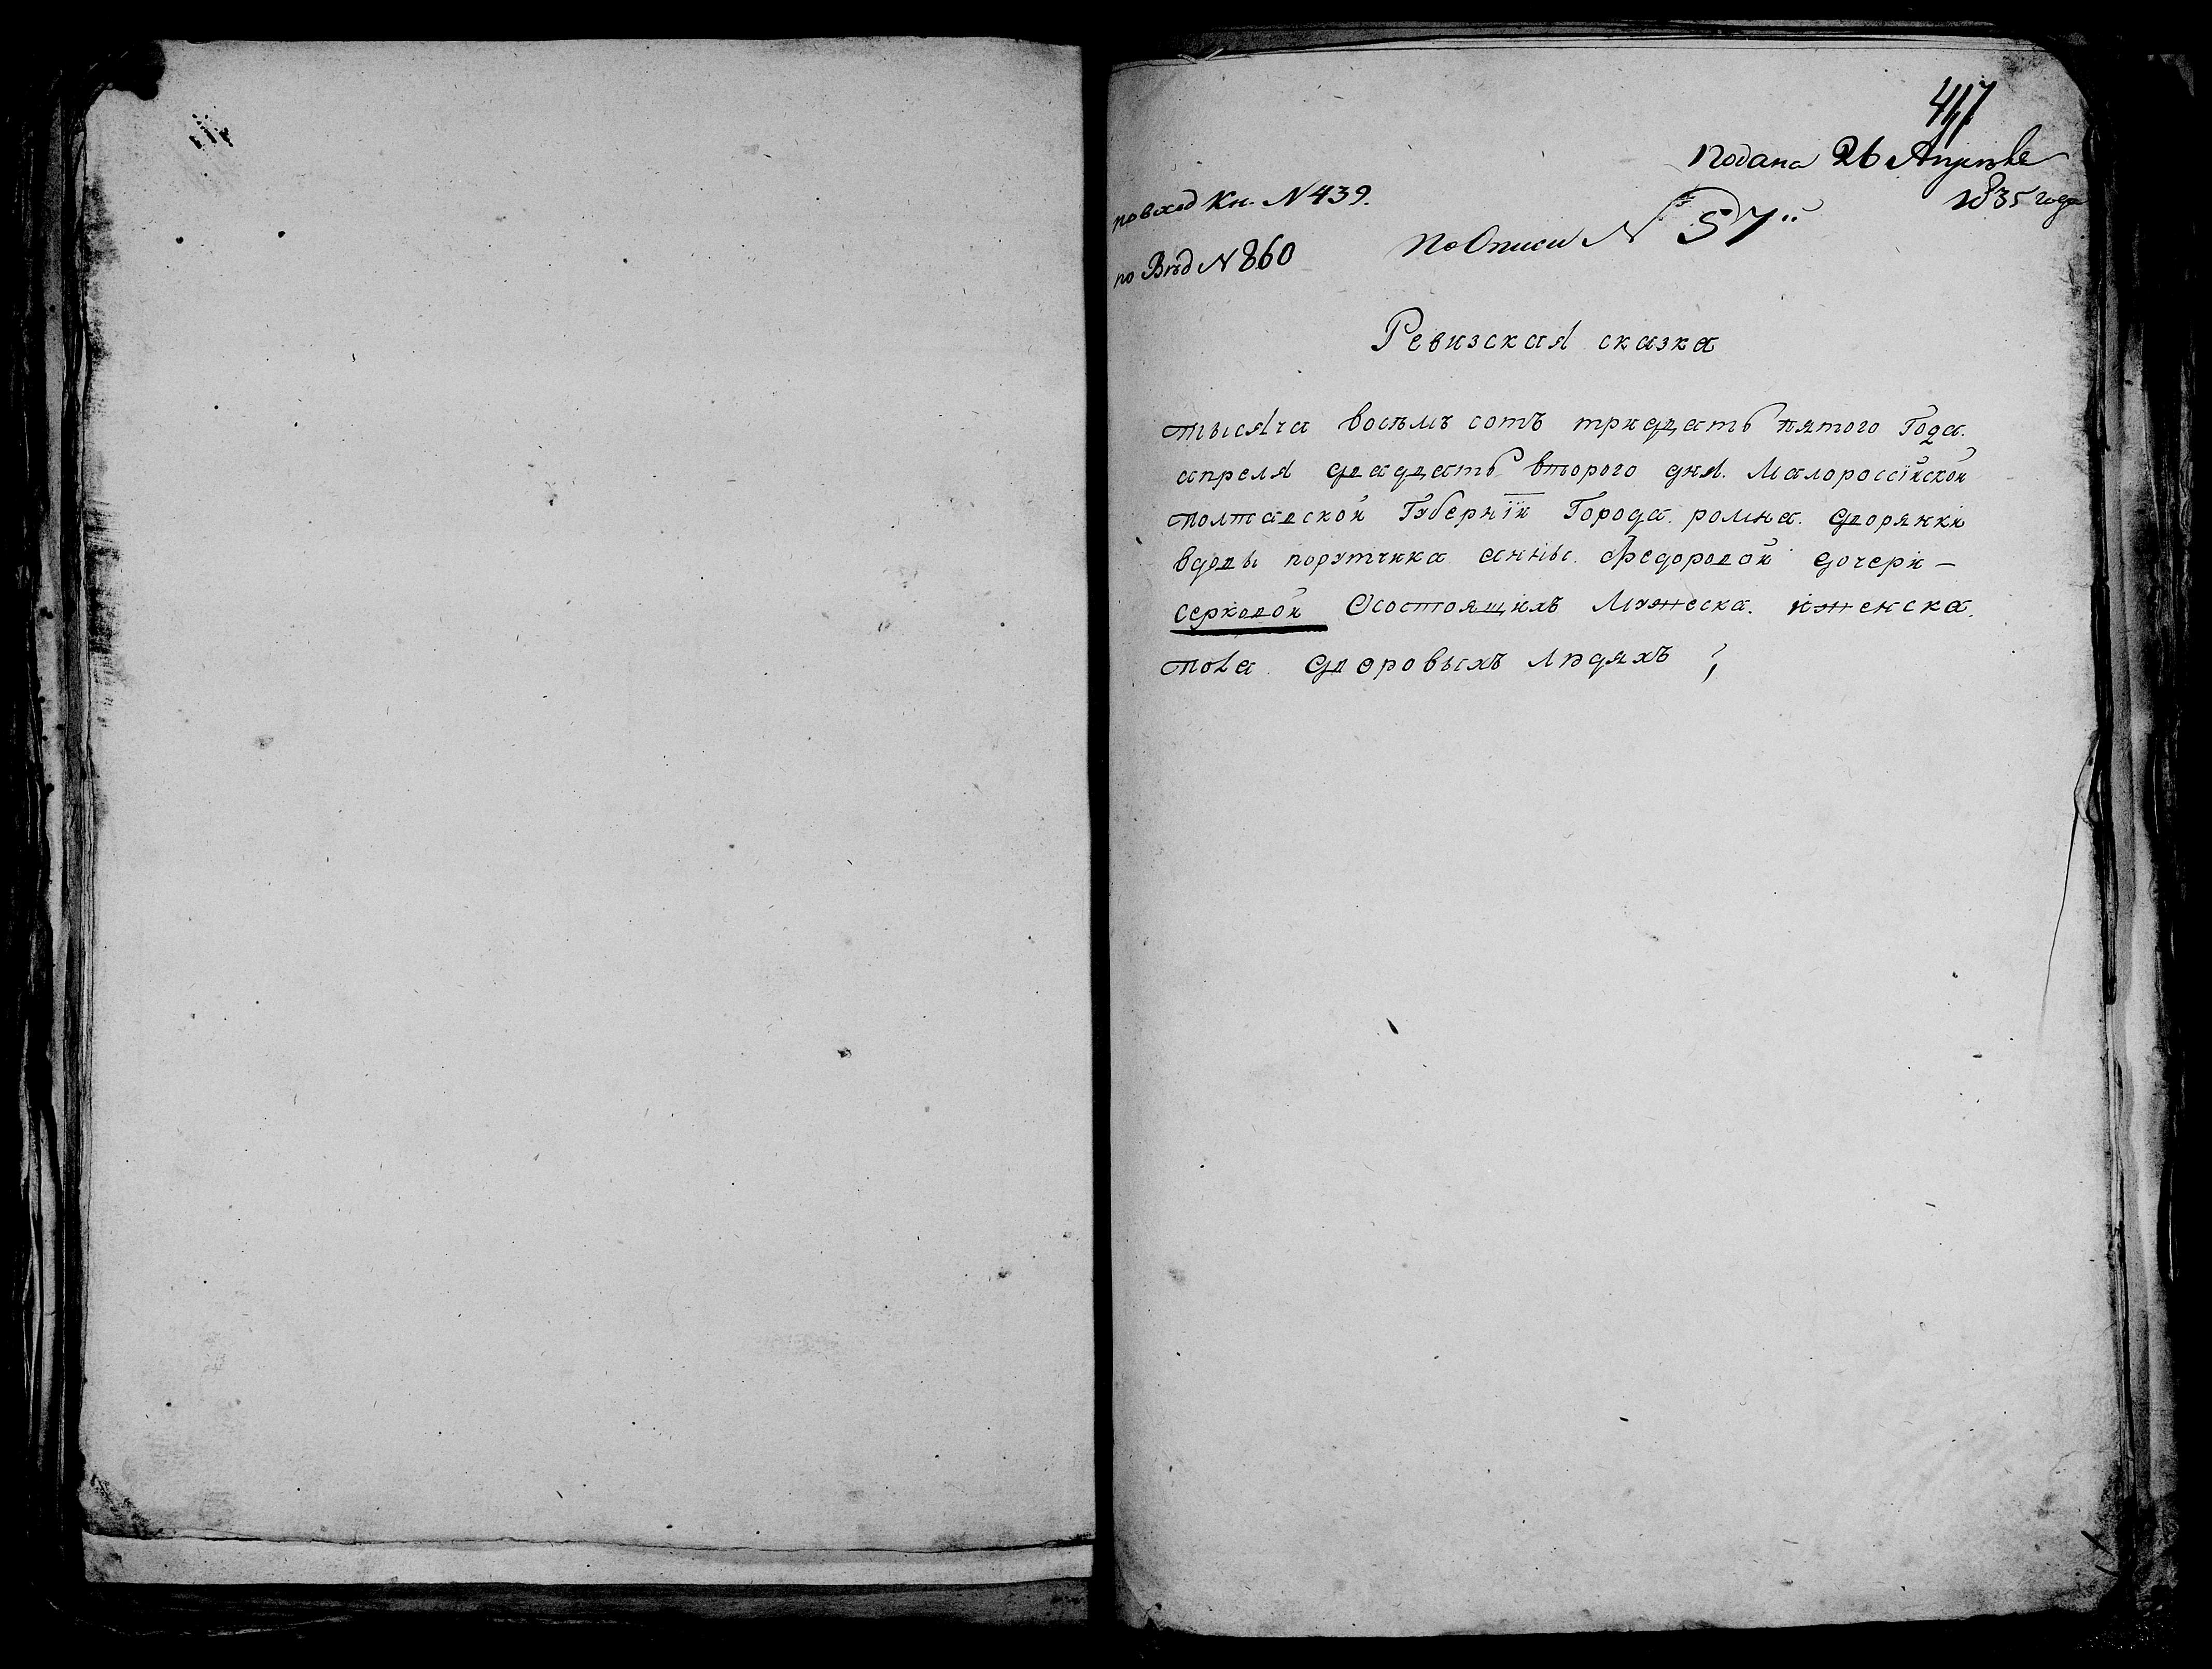 417
Подана 26 Апреля
1835 года
по вход Кн. N 439.
по Описи N 57
по Вѣд N 860
Ревизская сказка
тысяча восѣмъ сотъ тридцать пятого Года.
апреля двадцать второго дня. Малороссїйской
полтавской Гꙋбернїи Города. ромна. дворянки
вдовы порꙋтчика анны. Федоровой дочери –
Серковой Осостоящихъ Мꙋжеска. иженска.
пола. дворовыхъ людяхъ